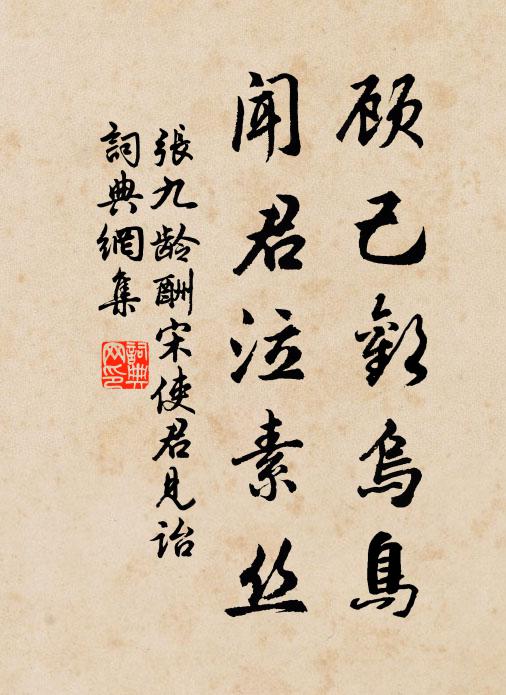 顾己欢乌鸟
闻君泣素丝
張九龄酬宋使君見诒
詞典網集
詞典网印